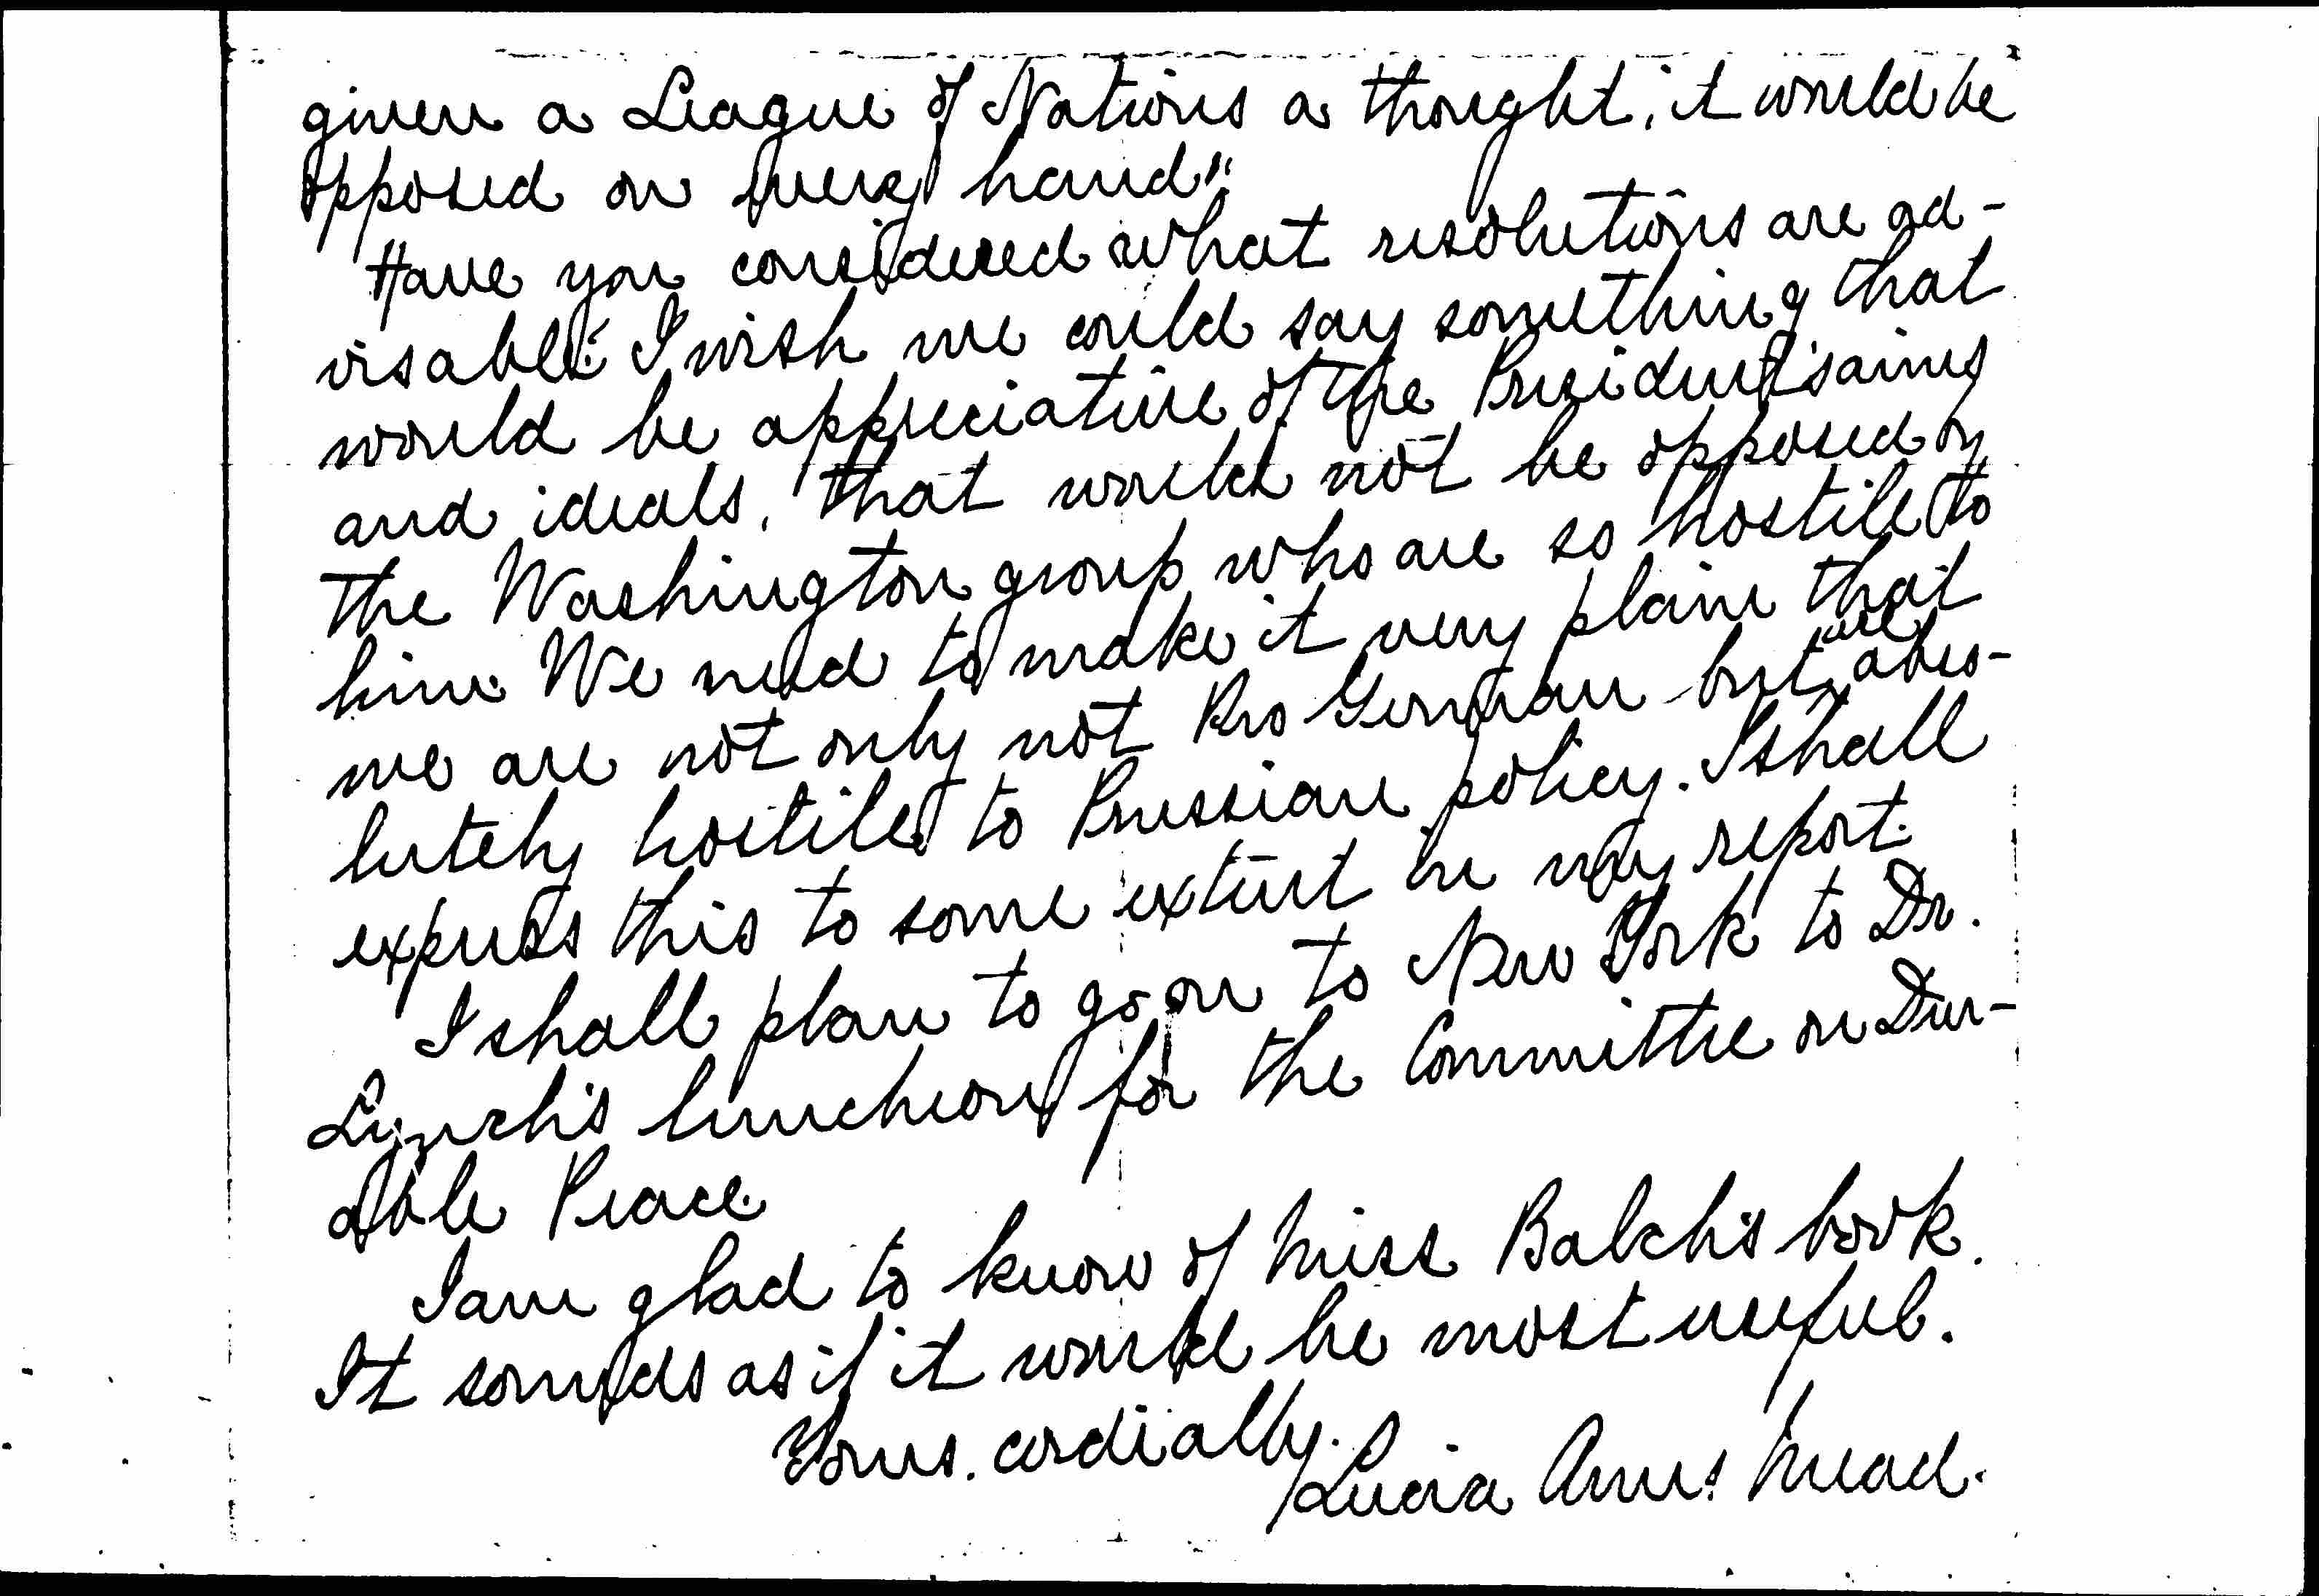 given a League of Nations a thought, it would be
opposed on every hand"
Have you considered what resolutions are ad-
visable? I wish we could say something that
would be appreciative of the President's aims
and ideals, that would not be opposed by
the Washington group who are so hostile to
him. We need to make it very plain that
we are not only not Pro German but are abso-
lutely hostile to Prussian policy. I shall
express this to some extent in my report.
I shall plan to go on to New York to Dr.
Lynch's luncheon for the Committee on Dur-
able Peace.
I am glad to know of Miss Balch's book.
It sounds as if it would be most useful.
Yours cordially.
Lucia Ames Mead.